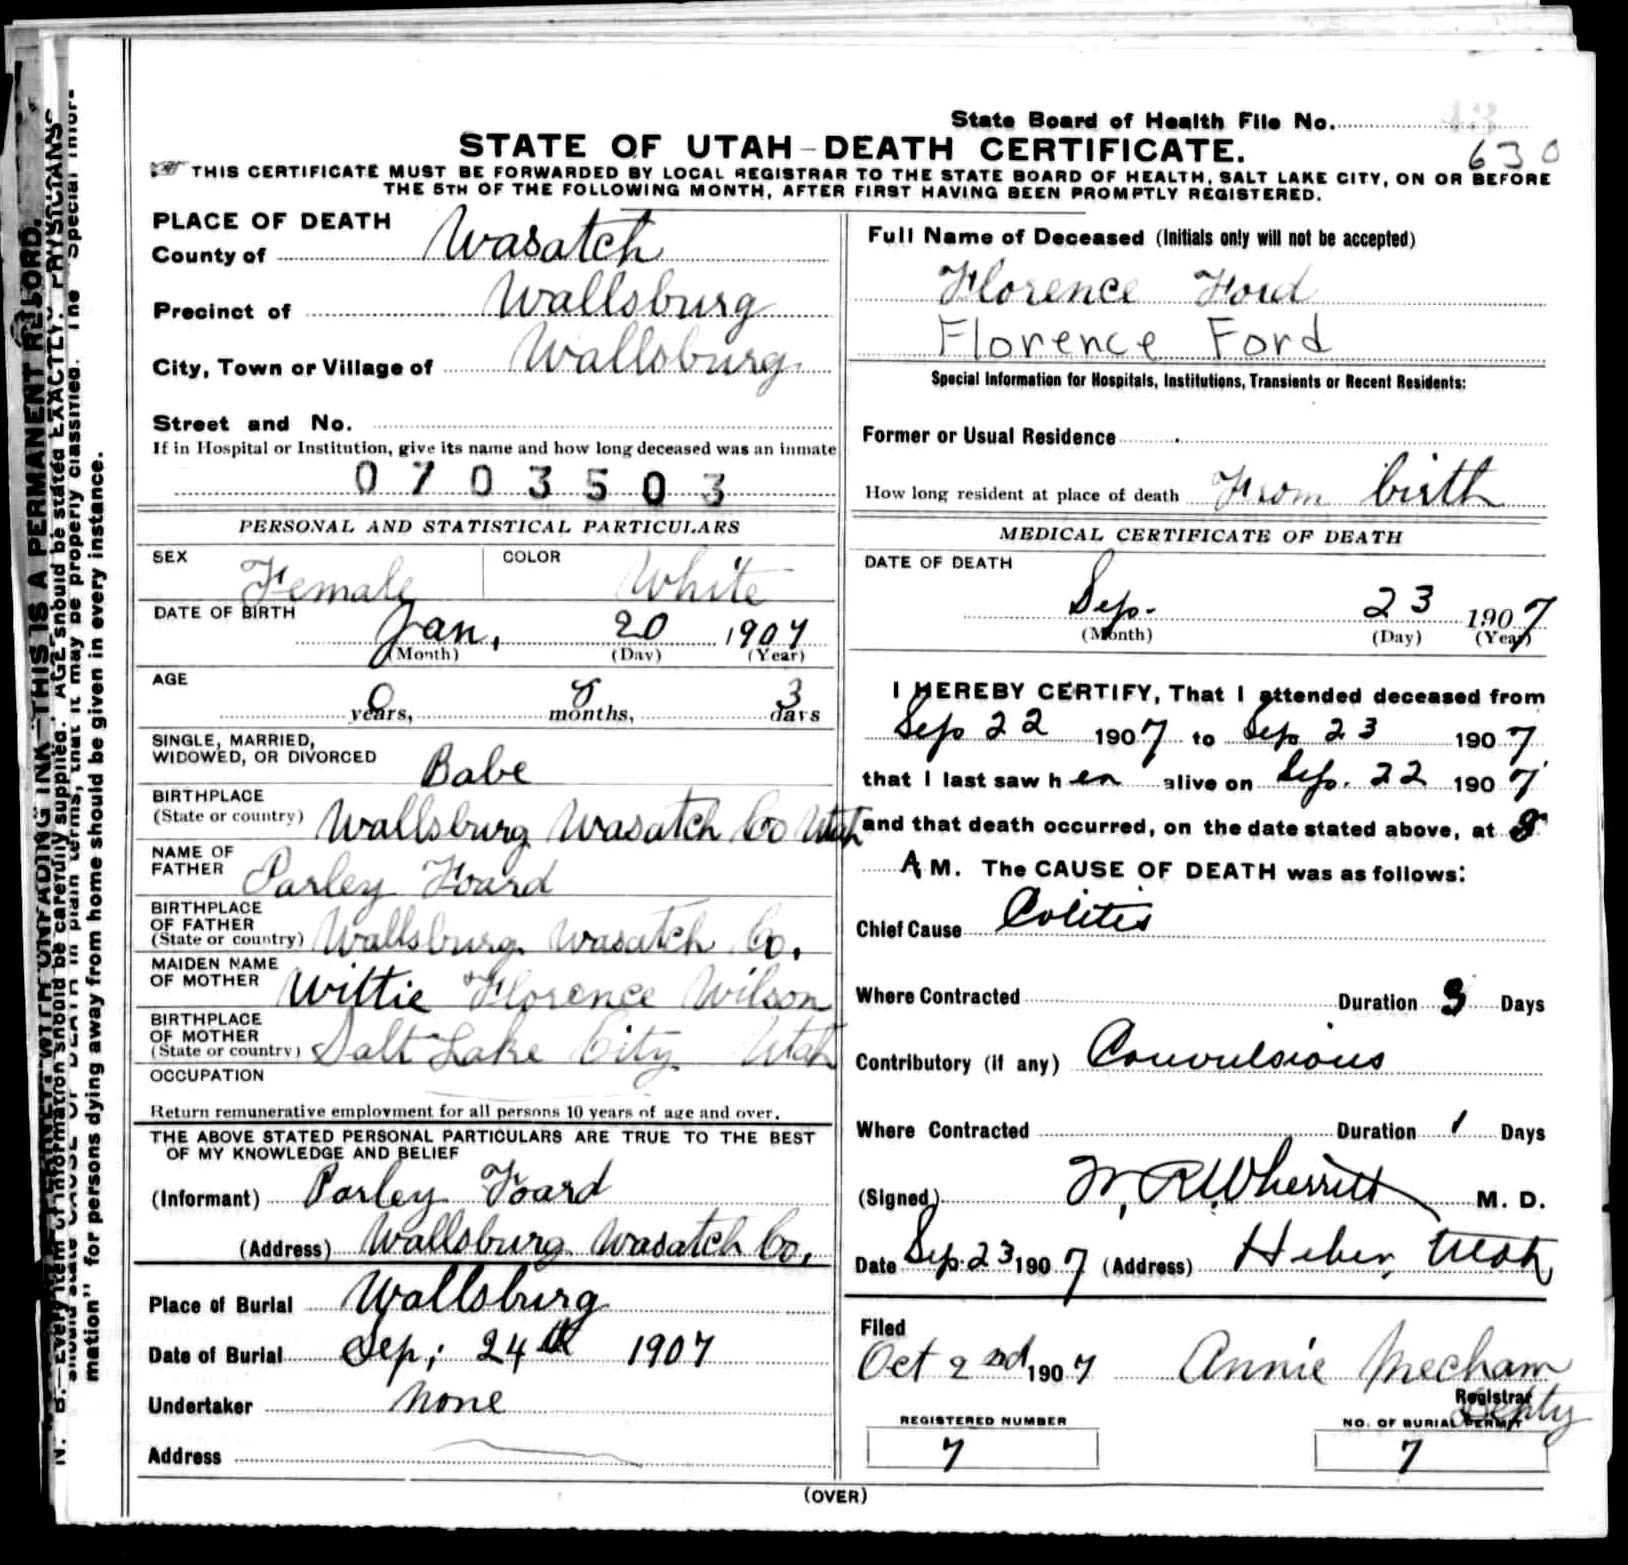 State Board of Health File No. 43
630
STATE OF UTAH-DEATH CERTIFICATE.
THIS CERTIFICATE MUST BE FORWARDED BY LOCAL REGISTRAR TO THE STATE BOARD OF HEALTH, SALT LAKE CITY, ON OR BEFORE
THE 5TH OF THE FOLLOWING MONTH, AFTER FIRST HAVING BEEN PROMPTLY REGISTERED.
PLACE OF DEATH
County of Wasatch
Precinct of Wallsburg
City, Town or Village of Wallsburg
Street and No.
If in Hospital or Institution, give its name and how long deceased was an inmate
0703503
PERSONAL AND STATISTICAL PARTICULARS
SEX Female COLOR White
DATE OF BIRTH
Jan, 20 1907
(Month) (Day) (Year)
AGE
0 years, 8 months, 3 days
SINGLE, MARRIED,
WIDOWED, OR DIVORCED Babe
BIRTHPLACE
(State or country) Wallsburg Wasatch Co Utah
NAME OF
FATHER Parley Foard
BIRTHPLACE
OF FATHER
(State or country) Wallsburg Wasatch Co.
MAIDEN NAME
OF MOTHER Wittie Florence Wilson
BIRTHPLACE
OF MOTHER
(State or country) Salt Lake City Utah
OCCUPATION
Return remunerative employment for all persons 10 years of age and over.
THE ABOVE STATED PERSONAL PARTICULARS ARE TRUE TO THE BEST
OF MY KNOWLEDGE AND BELIEF
(Informant) Parley Foard
(Address) Wallsburg Wasatch Co,
Place of Burial Wallsburg
Date of Burial Sep; 24th 1907
Undertaker None
Address
Full Name of Deceased (Initials only will not be accepted)
Florence Ford
Florence Ford
Special Information for Hospitals, Institutions, Transients or Recent Residents:
Former or Usual Residence
How long resident at place of death From birth
MEDICAL CERTIFICATE OF DEATH
DATE OF DEATH
Sep. 23 1907
(Month) (Day) (Year)
I HEREBY CERTIFY, That I attended deceased from
Sep 22 1907 to Sep 23 1907
that I last saw her alive on Sep. 22 1907
and that death occurred, on the date stated above, at 8
A M. The CAUSE OF DEATH was as follows:
Chief Cause Colitis
Where Contracted Duration 3 Days
Contributory (if any) Convulsions
Where Contracted Duration 1 Days
(Signed) W. R. Wherritt M. D.
Date Sep. 23 1907 (Address) Heber, Utah
Filed
Oct 2nd 1907 Annie Mecham
Registrar
Depty
REGISTERED NUMBER
7
NO. OF BURIAL PERMIT
7
(OVER)
THIS IS A PERMANENT RECORD.
AGE should be stated EXACTLY. PHYSICIANS
in plain terms, that it may be properly classified. The "Special Infor-
mation" for persons dying away from home should be given in every instance.